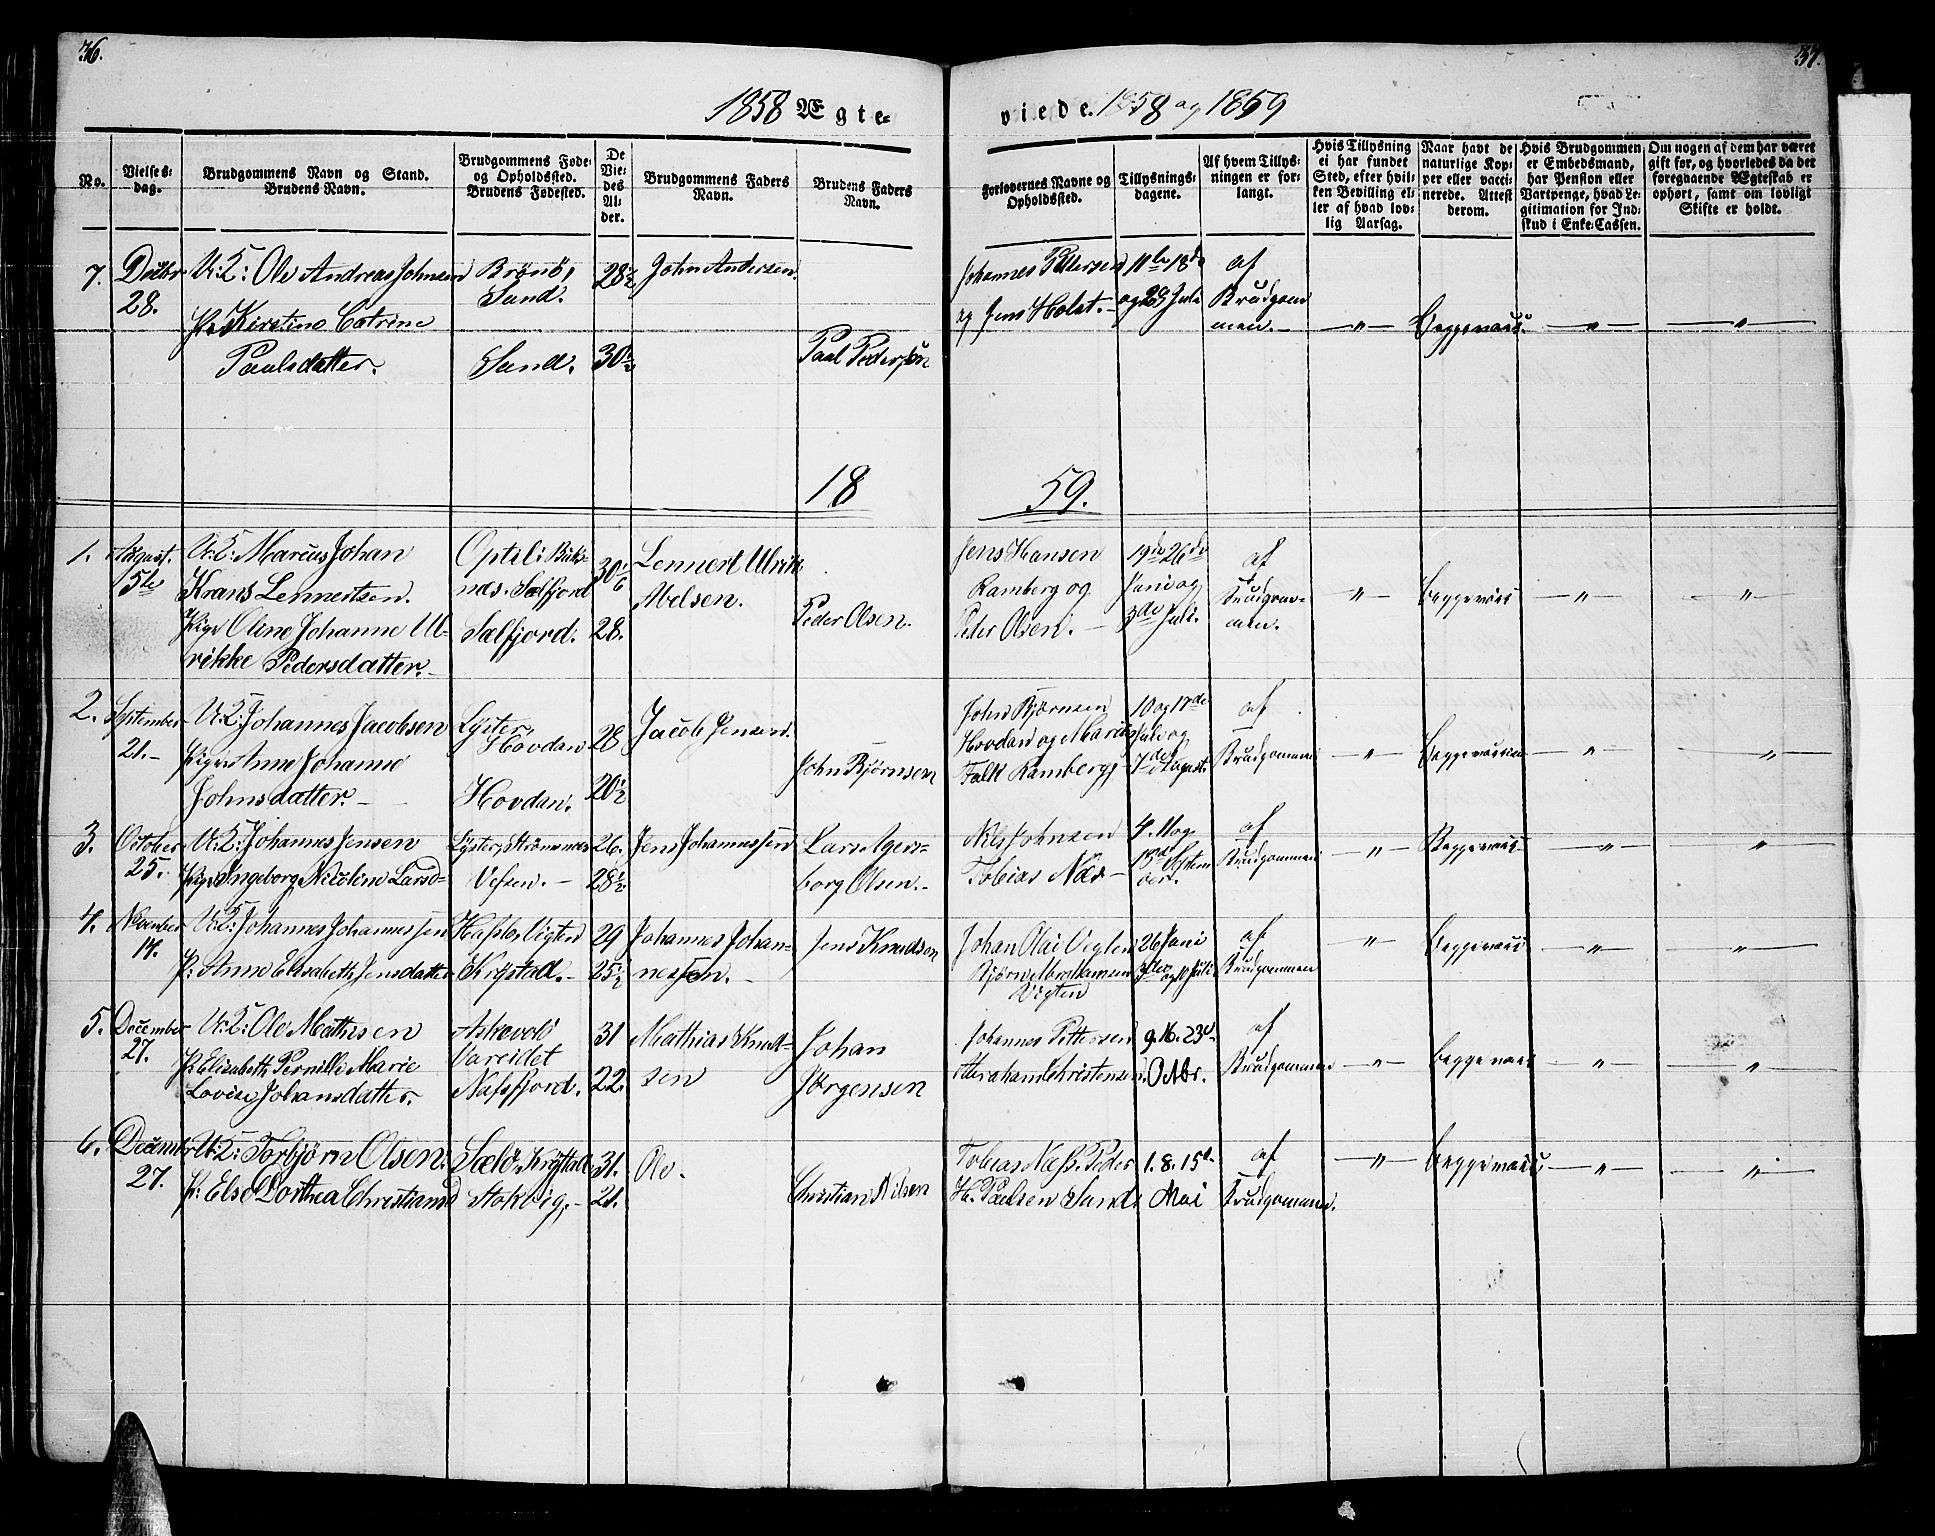 36.
37.
1858 Ægte-
viede. 1858 og 1859
No.
Vielses-
dag.
Brudgommens Navn og Stand.
Brudens Navn.
Brudgommens Føde-
og Opholdssted.
Brudens Fødested.
De
Vie-
des
Al-
der.
Brudgommens Faders
Navn.
Brudens Faders
Navn.
Forlovernes Navne og
Opholdssted.
Tillysnings-
dagene.
Af hvem Tillys-
ningen er for-
langt.
Hvis Tillysning
ei har fundet
Sted, efter hvil-
ken Bevilling el-
ler af hvad lov-
lig Aarsag.
Naar havt de
naturlige Kop-
per eller vacci-
nerede. Attest
derom.
Hvis Brudgommen
er Embedsmand,
har Pension eller
Vartpenge, hvad Le-
gitimation for Ind-
skud i Enke-Cassen.
Om nogen af dem har været
gift før, og hvorledes da det
foregaaende Ægteskab er
ophørt, samt om lovligt
Skifte er holdt.
7. Decbr
28.
U: K: Ole Andreas Johnsen
Kirstine Catrine
Paulsdatter.
Brönö,
Sand.
Sand.
28½
30½
John Andersen.
Paal Pedersen
Johannes Pettersen
og Jens Holst.
11te 18de
og 29 Juli
af
Brudgom
men.
— " — Begge vacc. — " — — " —
18 59.
1. August.
15de
U: K: Marcus Johan
Krans Lennertsen.
Pige Oline Johanne Ul-
rikke Pedersdatter.
Sælfjord
Sælfjord.
28.
Lennert Ulrik
Abelsen.
Peder Olsen.
Jens Hansen
Ramberg og
Peter Olsen.
19de 26de
Juni og
3de Juli.
af
Brudgom-
men.
— " — Begge vacc — " — "
2. September
21.
U: K: Johannes Jacobsen
Pige Anne Johanne
Johnsdatter.
Lyster,
Hovdan
Hovdan.
28
20½
Jacob Jensen.
John Bjørnsen
John Bjørnsen
Hovdan og Marius
Falk Ramberg,
10 og 17de
Juli og
7de August.
af
Brudgommen
— " — Begge vaccin — " — "
3. October
25.
U: K: Johannes Jensen
Pige Ingeborg Nicoline Larsd
Lyster,
Vefsen.
26.
28½
Jens Johannessen
Lars Agers-
borg Olsen.
Nils Johnsen
Tobias Næs
4. 11 og
18de Septem
ber.
af
Brudgommen
— " — Begge vacc. — " — "
4. November
14.
U: K: Johannes Johannessen
P: Anne Elisabeth Jensdatter
Vigten
Krystad.
29
25½
Johannes Johan-
nessen.
Jens Knudsen
Johan Olai Vigten
Bjørn Abrahamsen
Vigten
26 Juni
3die og 10 Juli
af
Brudgommen
— " — Begge vacc — " — "
5. December
27.
U: K: Ole Mathisen
P: Elisabeth Pernille Marie
Lovise Johansdatter.
Askevold
Vareidet
Næsfjord.
31
22.
Mathias Knut-
sen
Johan
Jörgensen
Johannes Pettersen
Abraham Christensen
9. 16. 23d
Octbr.
af
Brudgommen
— " — Begge vacc — " — "
6. December
27.
U: K: Torbjørn Olsen.
P: Else Dorthea Christiansd
Sælö, Krystad
Stokvig.
31.
21.
Ole.
Christian Nilsen
Tobias Næss. Peder
H. Paulsen Sand.
1. 8. 15d.
Mai
af
Brudgommen.
— " — Begge vacc. — " — "